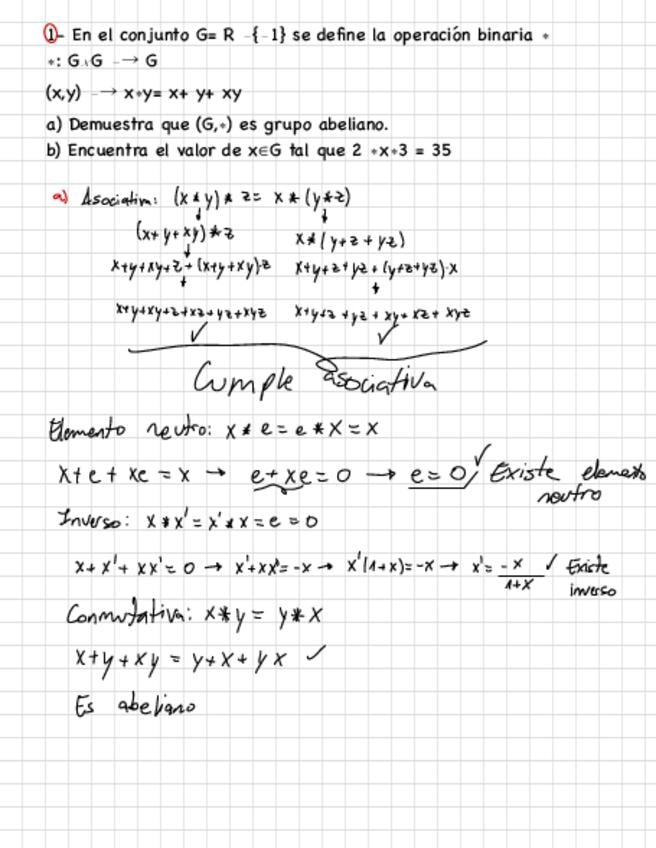 1- En el conjunto G= R -{-1} se define la operación binaria *
*: G×G → G
(x,y) → x*y= x+ y+ xy
a) Demuestra que (G,*) es grupo abeliano.
b) Encuentra el valor de x∈G tal que 2 *x*3 = 35
a) Asociativa: (x*y)*z = x*(y*z)
(x+y+xy)*z x*(y+z+yz)
x+y+xy+z+(x+y+xy)·z x+y+z+yz+(y+z+yz)·x
x+y+xy+z+xz+yz+xyz x+y+z+yz+xy+xz+xyz
✓ ✓
Cumple asociativa
Elemento neutro: x*e=e*x=x
x+e+xe=x → e+xe=0 → e=0 ✓ Existe elemento
neutro
Inverso: x*x'=x'*x=e=0
x+x'+xx'=0 → x'+xx'=-x → x'(1+x)=-x → x'=-x/1+x ✓ Existe
inverso
Conmutativa: x*y = y*x
x+y+xy = y+x+yx ✓
Es abeliano